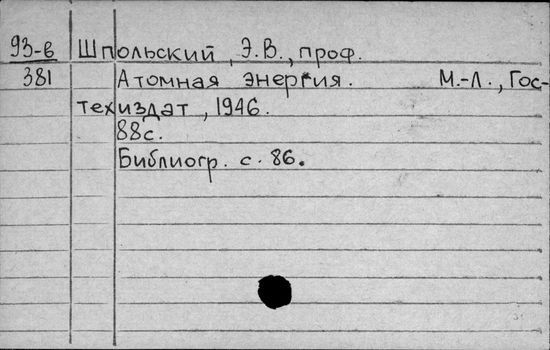 93-в Шпольский, Э.В., проф.
381 Атомная энергия. М.-Л., Гос-
техиздат, 1946.
88с.
Библиогр. с. 86.